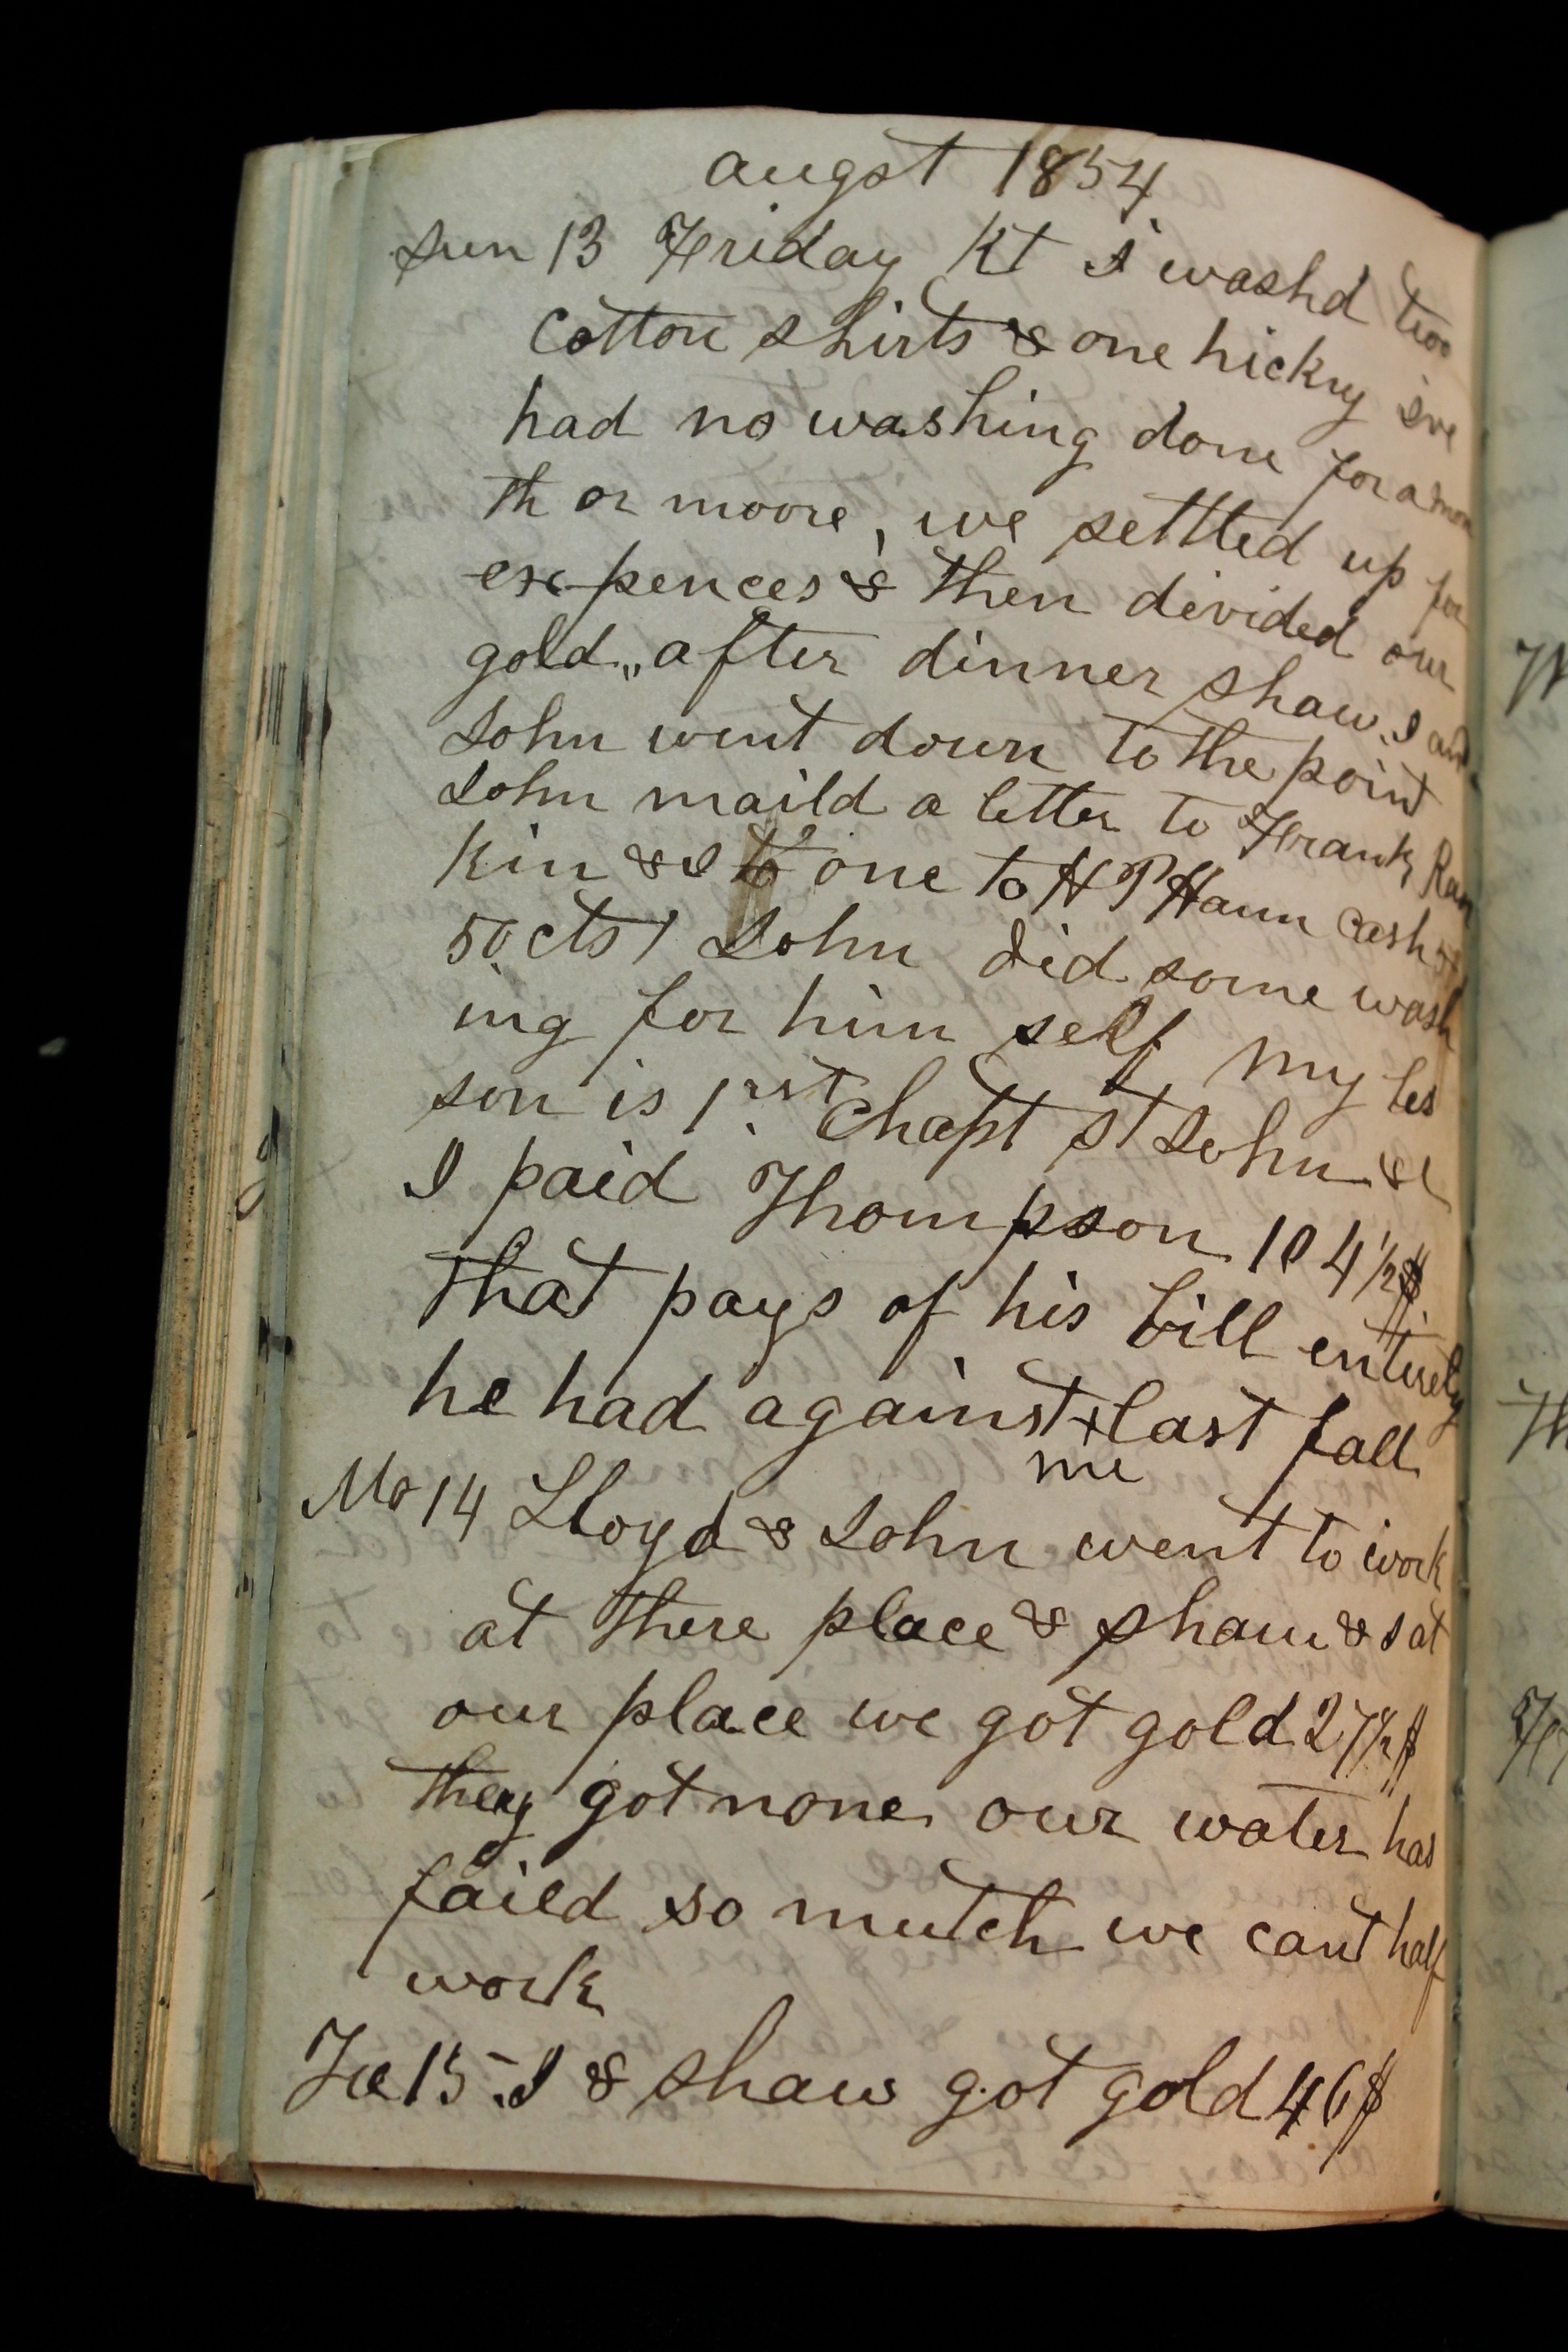 augst 1854
Sun 13 Friday Kt I washd two
cotton shirts & one hickry ive
had no washing done for a mon
th or moore, we settled up for
expences & then divided our
gold,, after dinner Shaw, I and
John went down to the point
John maild a letter to Frank Ran
kin & I one to H P Haun cash
50 cts / John did some wash
ing for him self my les
son is 1rst Chapt St John &c
I paid Thompson 104 1/2 $
that pays of his bill entirely
he had against + last fall
me
Mo 14 Lloyd & John went to work
at there place & Shaw & I at
our place we got gold 27 1/2 $
they got none our water has
faild so mutch we cant half
work
Tue 15 I & Shaw got gold 46 $